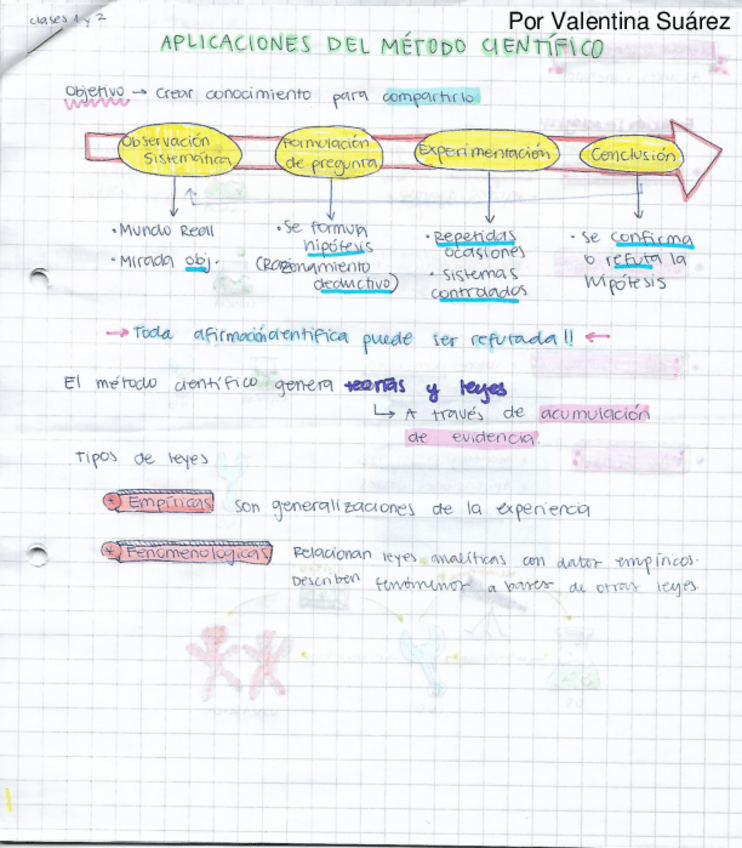 clases 1 y 2
Por Valentina Suárez
APLICACIONES DEL MÉTODO CIENTÍFICO
Objetivo → Crear conocimiento para compartirlo
Observación
Sistemática
Formulación
de pregunta
Experimentación
Conclusión
• Mundo Real
• Mirada obj.
• Se formula
hipótesis
(Razonamiento
deductivo)
• Repetidas
ocasiones
• Sistemas
controlados
• Se confirma
o refuta la
hipótesis
→ Toda afirmación científica puede ser refutada!! ←
El método científico genera teorías y leyes
↳ A través de acumulación
de evidencia.
Tipos de leyes
* Empíricas son generalizaciones de la experiencia
* Fenomenológicas Relacionan leyes analíticas con datos empíricos.
Describen fenómenos a bases de otras leyes